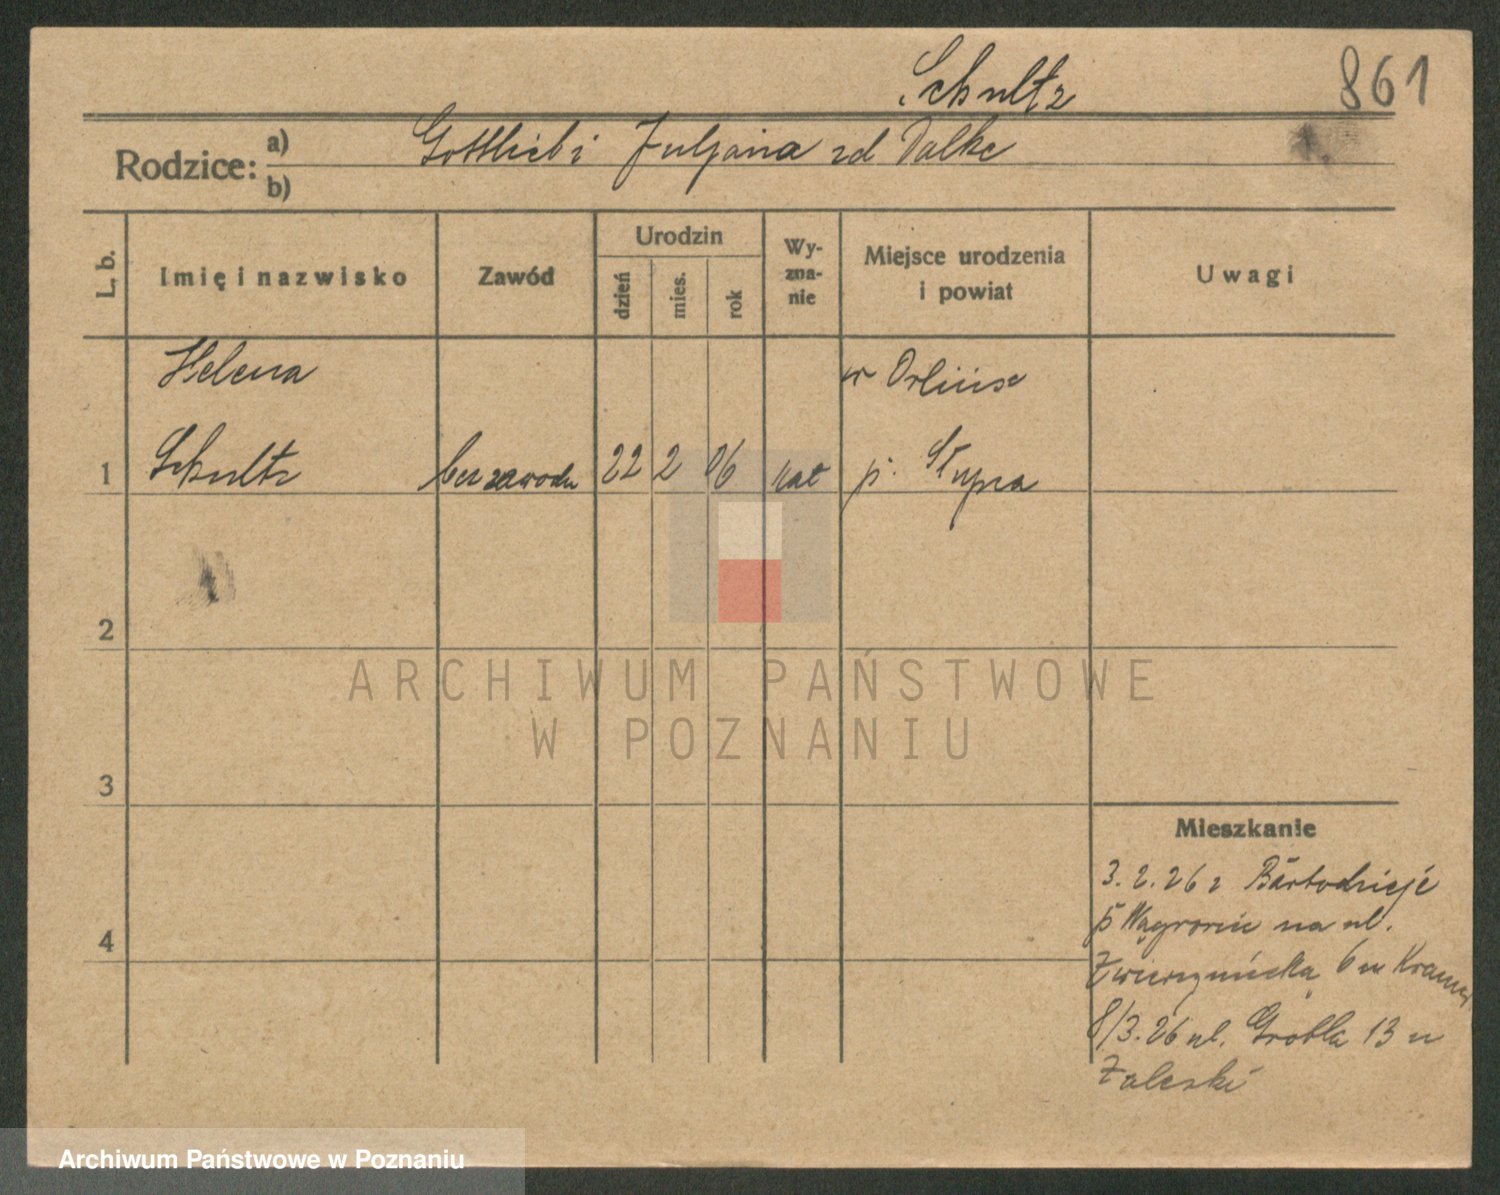 Schultz
861
Rodzice: a) Gottlieb i Juljanna zd Dalke
b)
L. b.
Imię i nazwisko
Zawód
Urodzin
dzień
mies.
rok
Wy-
zna-
nie
Miejsce urodzenia
i powiat
Uwagi
Helena w
1 Schultz bez zawodu 22 2 06 kat p. Słupca
2
3
4
Mieszkanie
3.2.26 z Bartodzieje
p Wągrowiec na ul.
Zwierzyniecką 6 u
8/3.26 ul. Grobla 13 u
Zaleski
ARCHIWUM PAŃSTWOWE
W POZNANIU
Archiwum Państwowe w Poznaniu